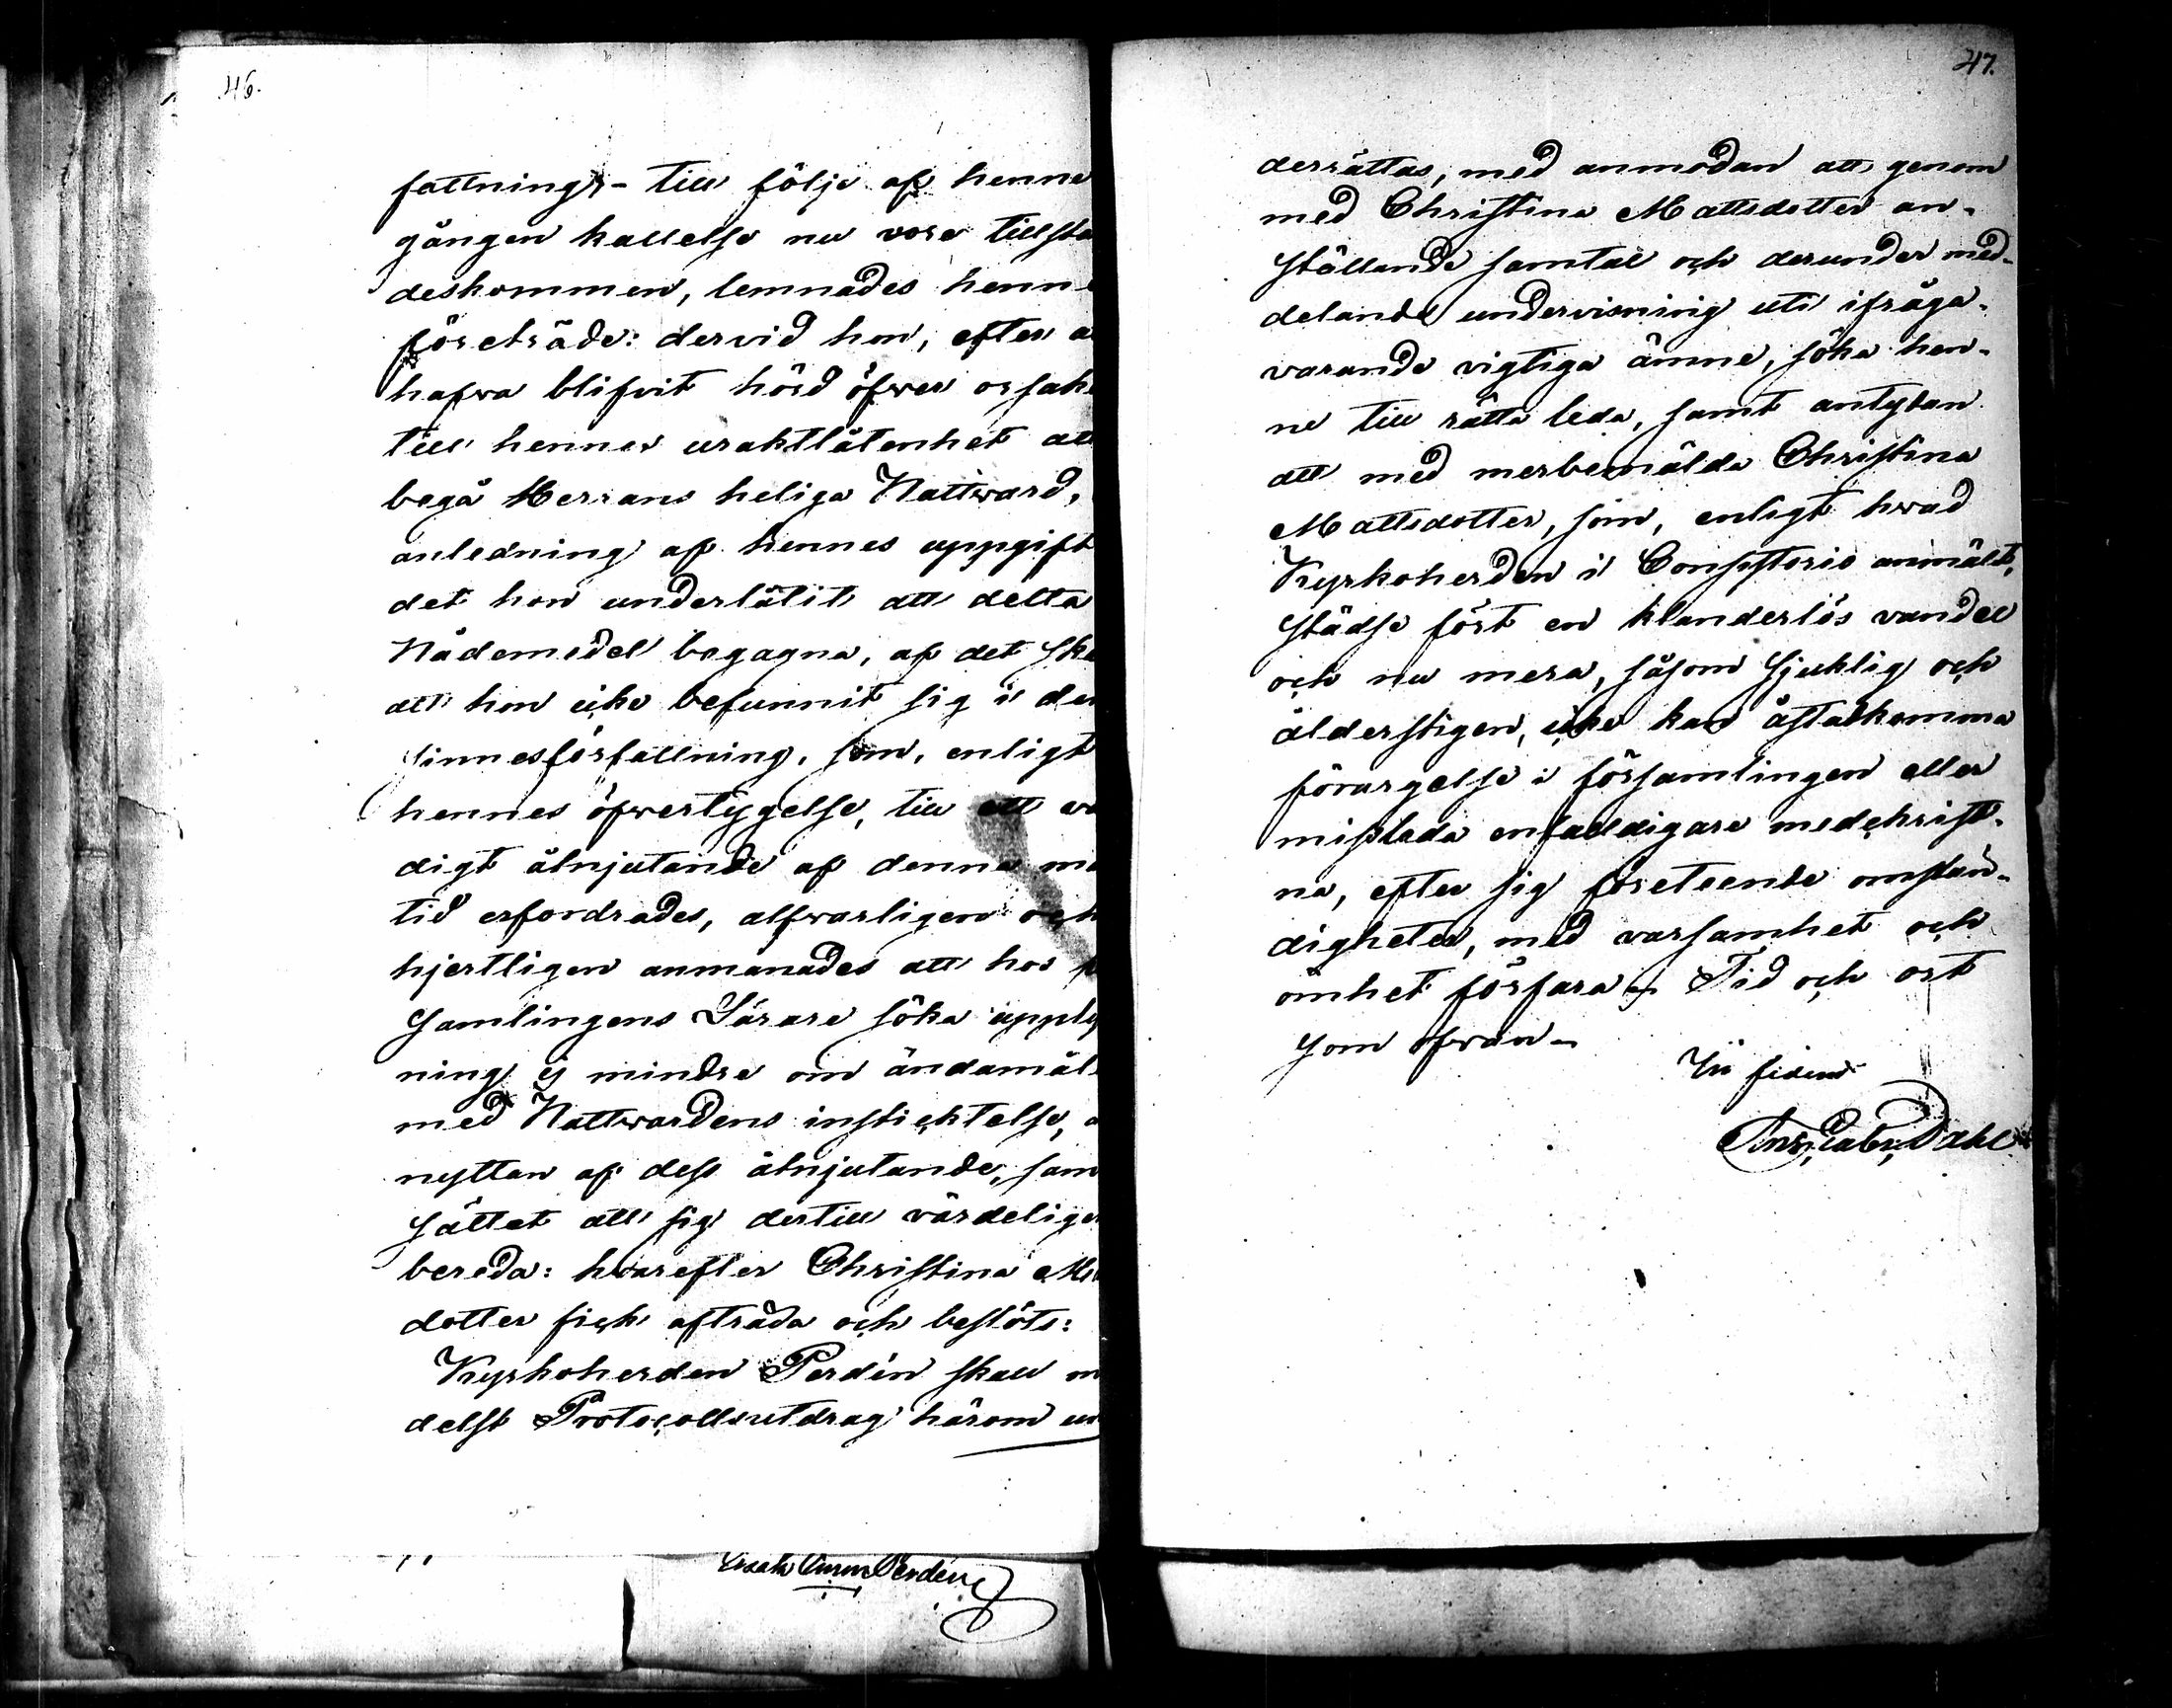 46.
fattnings- till följe af henne
gången kallelse nu vore tillsta
deskommen, lemnades henne
företräde: dervid hon, efter a
hafva blifvit hörd öfwer orsak
till hennes uraktlåtenhet att
begå Herrans heliga Nattward,
anledning af hennes uppgift
det hon underlåtit att detta
Nådemedel begagna, af det ska
att hon icke befunnit sig i de
sinnesförfattning, som, enligt
hennes öfwertygelse, till ett vä
digt åtnjutande af denna må
tid erfordrades, alfwarligen och
hjertligen anmanades att hos f
samlingens Lärare söka upply
ning ej mindre om ändamål
med Nattwardens instichtelse, a
nyttan af dess åtnjutande, sam
sättet att sig dertill värdelige
bereda: hvarefter Christina Ma
dotter fick afträda och beslöts:
Kyrkoherden Perdén skall m
delst Protocollsutdrag härom un
Perden
47.
derrättas, med anmodan att genom
med Christina Mattsdotter an-
ställande samtal och derunder med-
delande undervisning uti ifråga-
varande vigtiga ämne, söka hen-
ne till rätta leda, samt antydan
att med merbemälda Christina
Mattsdotter, som, enligt hwad
Kyrkoherden i Consistorio anmält,
städse fört en klanderlös vandel
och nu mera, såsom sjuklig och
ålderstigen, icke kan åstadkomma
förargelse i församlingen eller
missleda enfaldigare medchrist-
na, efter sig företeende omstän-
digheter, med varsamhet och
ömhet förfara. Tid och ort
som ofwan-
In fidem
Dahl